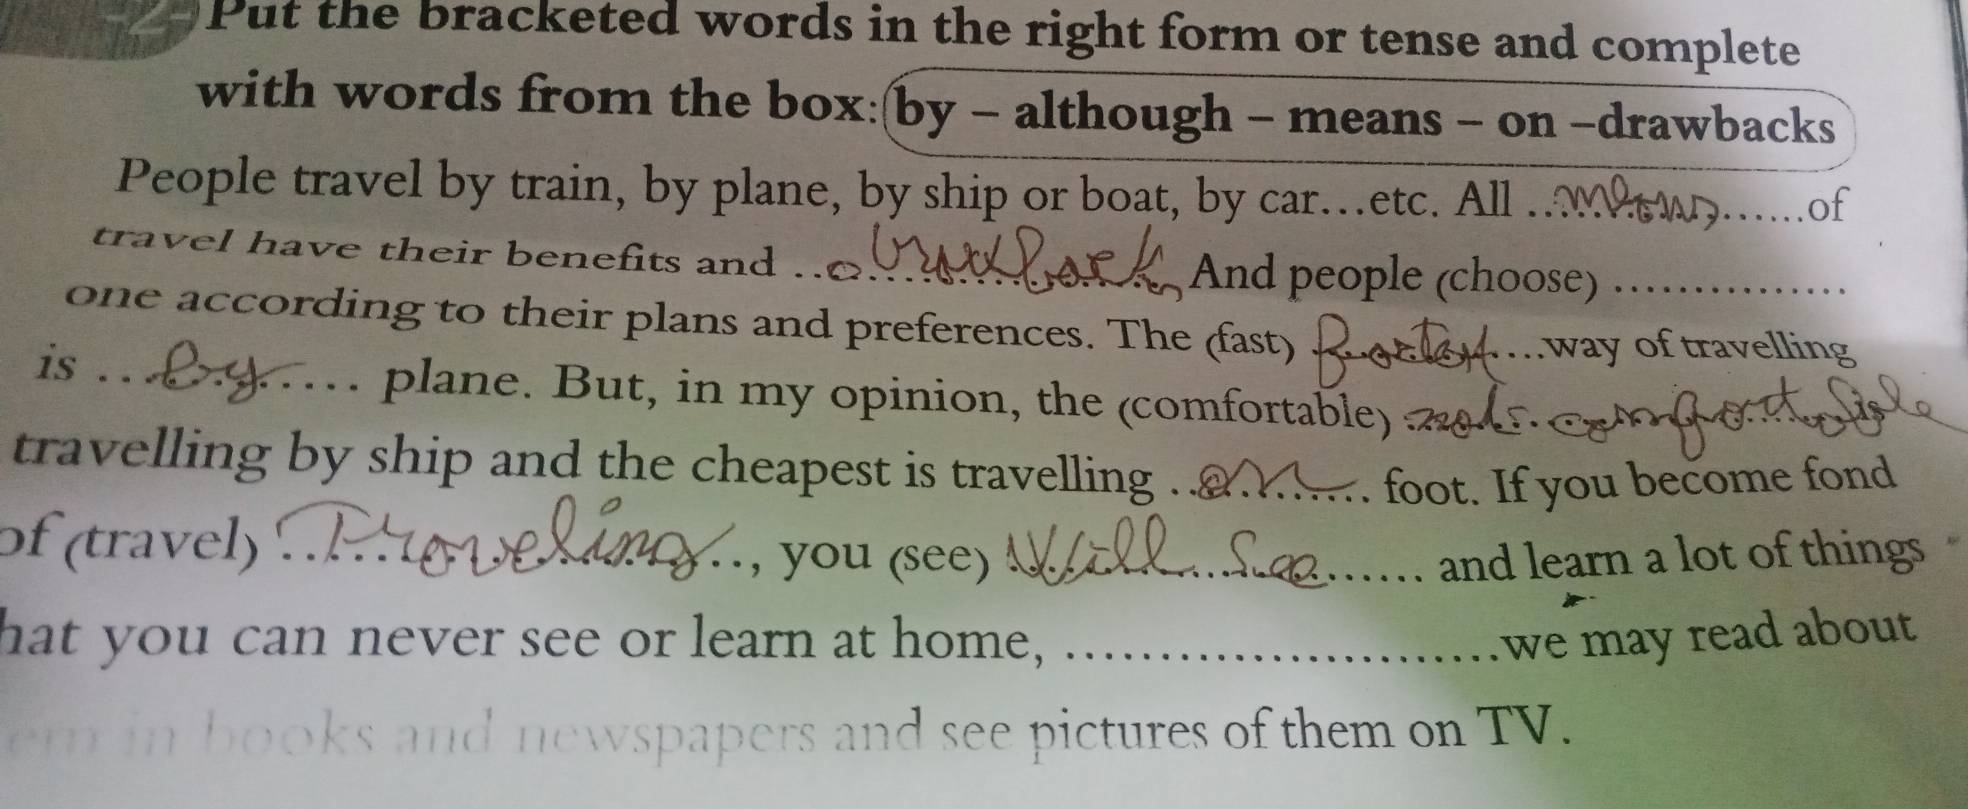 -2- Put the bracketed words in the right form or tense and complete
with words from the box: by – although – means – on –drawbacks
People travel by train, by plane, by ship or boat, by car...etc. All ...means......of
travel have their benefits and ............ And people (choose) ...............
one according to their plans and preferences. The (fast) ......way of travelling
is ...by..... plane. But, in my opinion, the (comfortable) ......
travelling by ship and the cheapest is travelling ..on...... foot. If you become fond
of (travel) ...Traveling..., you (see) will see...... and learn a lot of things
hat you can never see or learn at home, ...........................we may read about
em in books and newspapers and see pictures of them on TV.